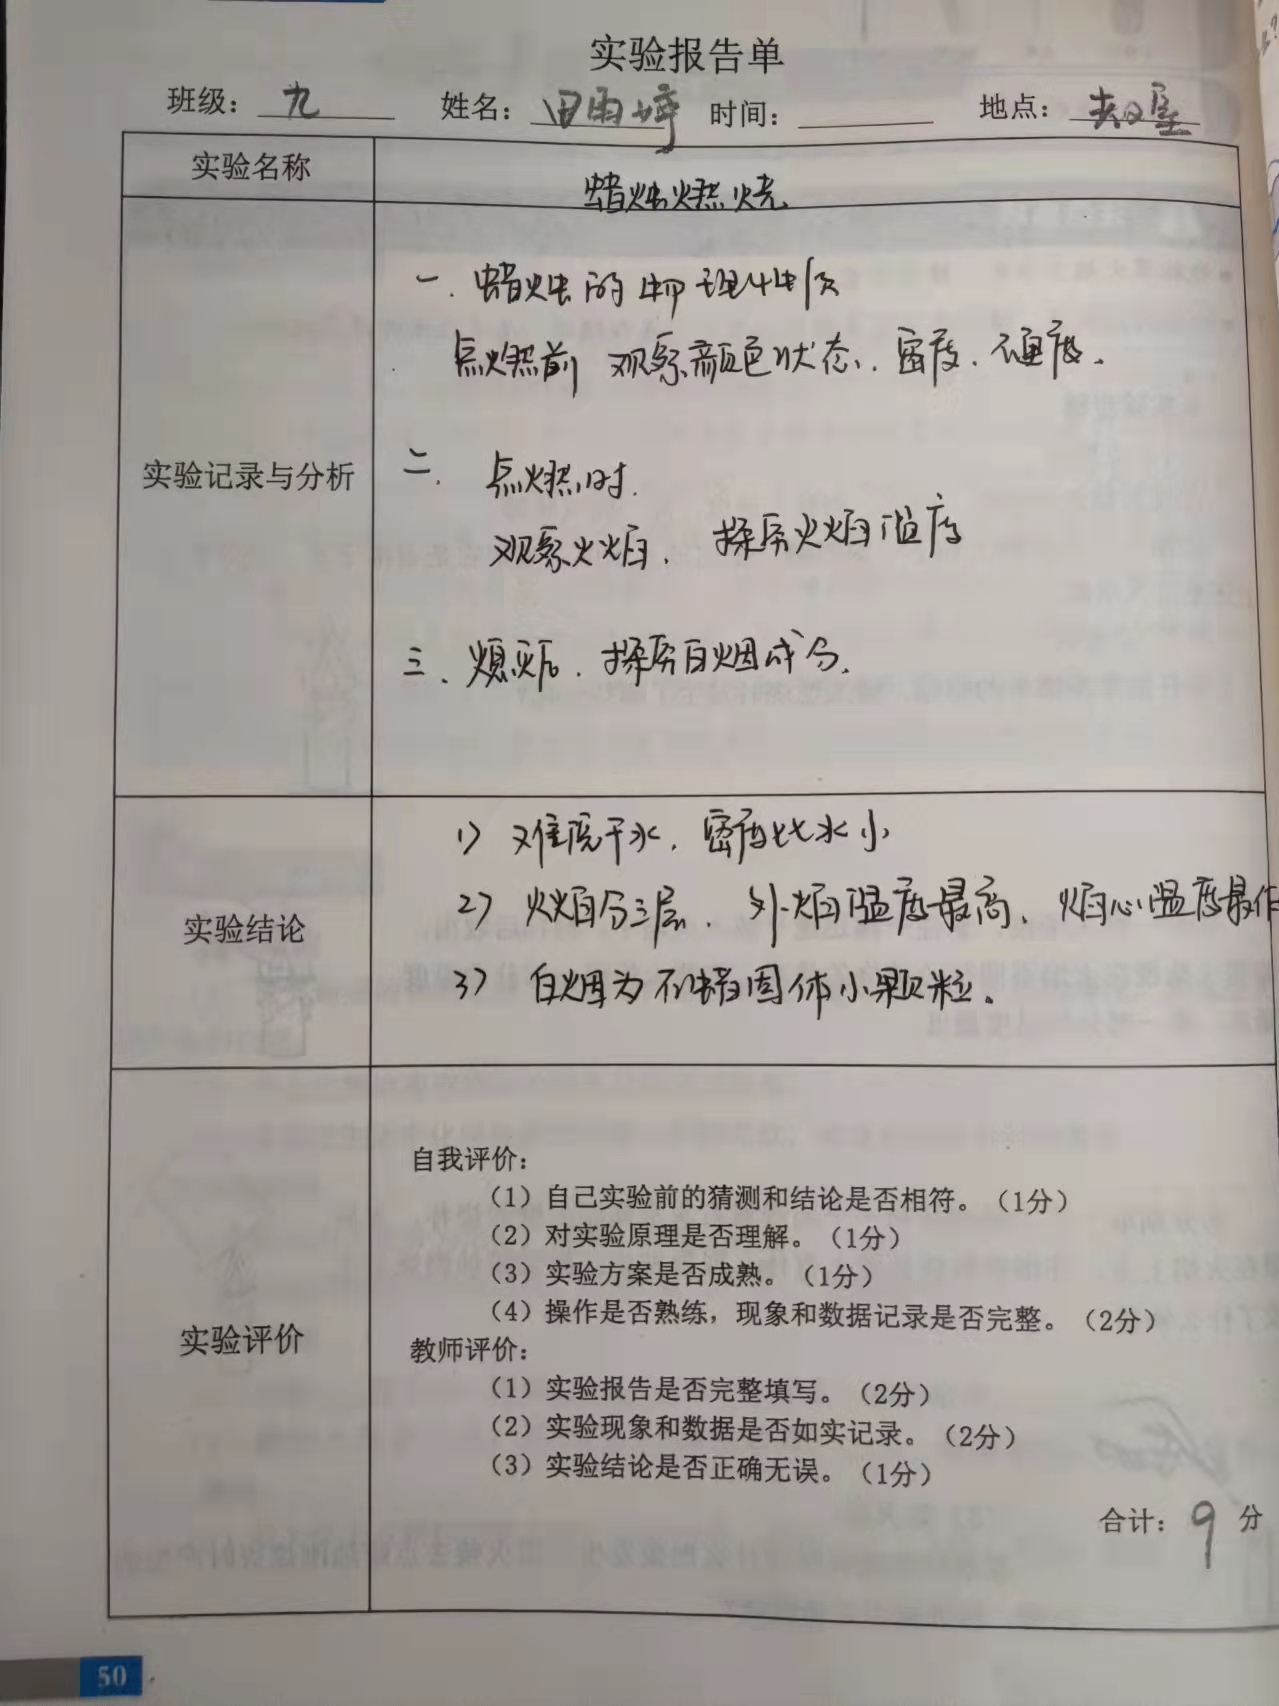 实验报告单
班级：九 姓名：田雨婷 时间： 地点：教室
实验名称
蜡烛燃烧
实验记录与分析
一、蜡烛的物理性质
点燃前 观察颜色状态、密度、硬度。
二、点燃时.
观察火焰、探究火焰温度
三、熄灭后、探究白烟成分.
实验结论
1) 难溶于水，密度比水小
2) 火焰分三层、外焰温度最高、焰心温度最低
3) 白烟为石蜡固体小颗粒。
实验评价
自我评价：
（1）自己实验前的猜测和结论是否相符。（1分）
（2）对实验原理是否理解。（1分）
（3）实验方案是否成熟。（1分）
（4）操作是否熟练，现象和数据记录是否完整。（2分）
教师评价：
（1）实验报告是否完整填写。（2分）
（2）实验现象和数据是否如实记录。（2分）
（3）实验结论是否正确无误。（1分）
合计：9 分
50